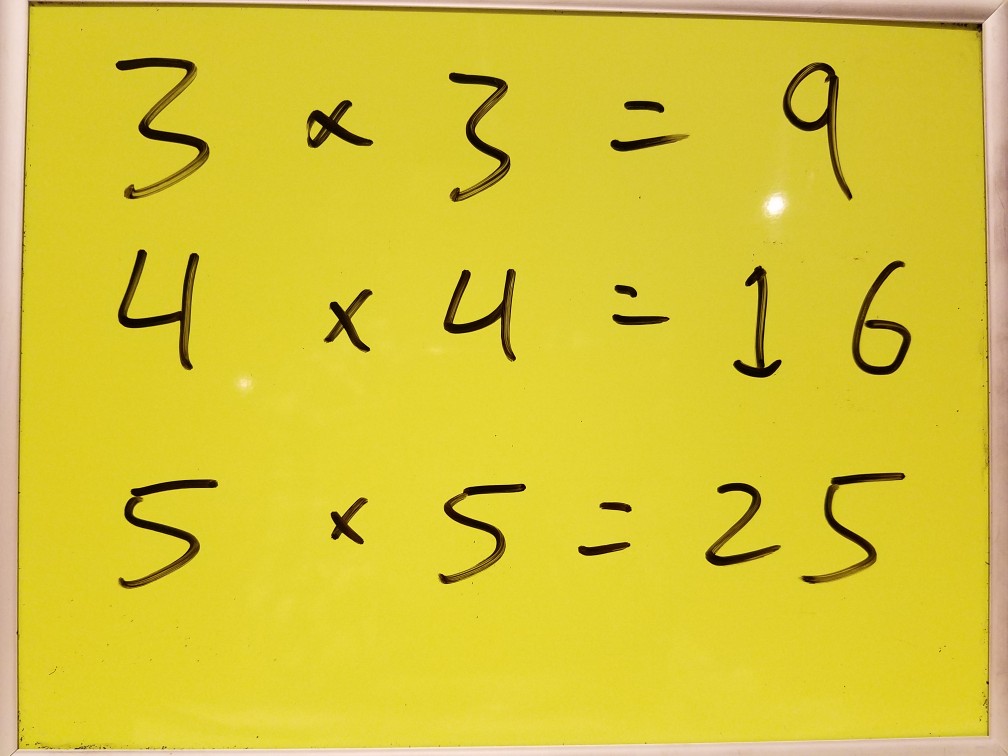 3 × 3 = 9
4 × 4 = 16
5 × 5 = 25